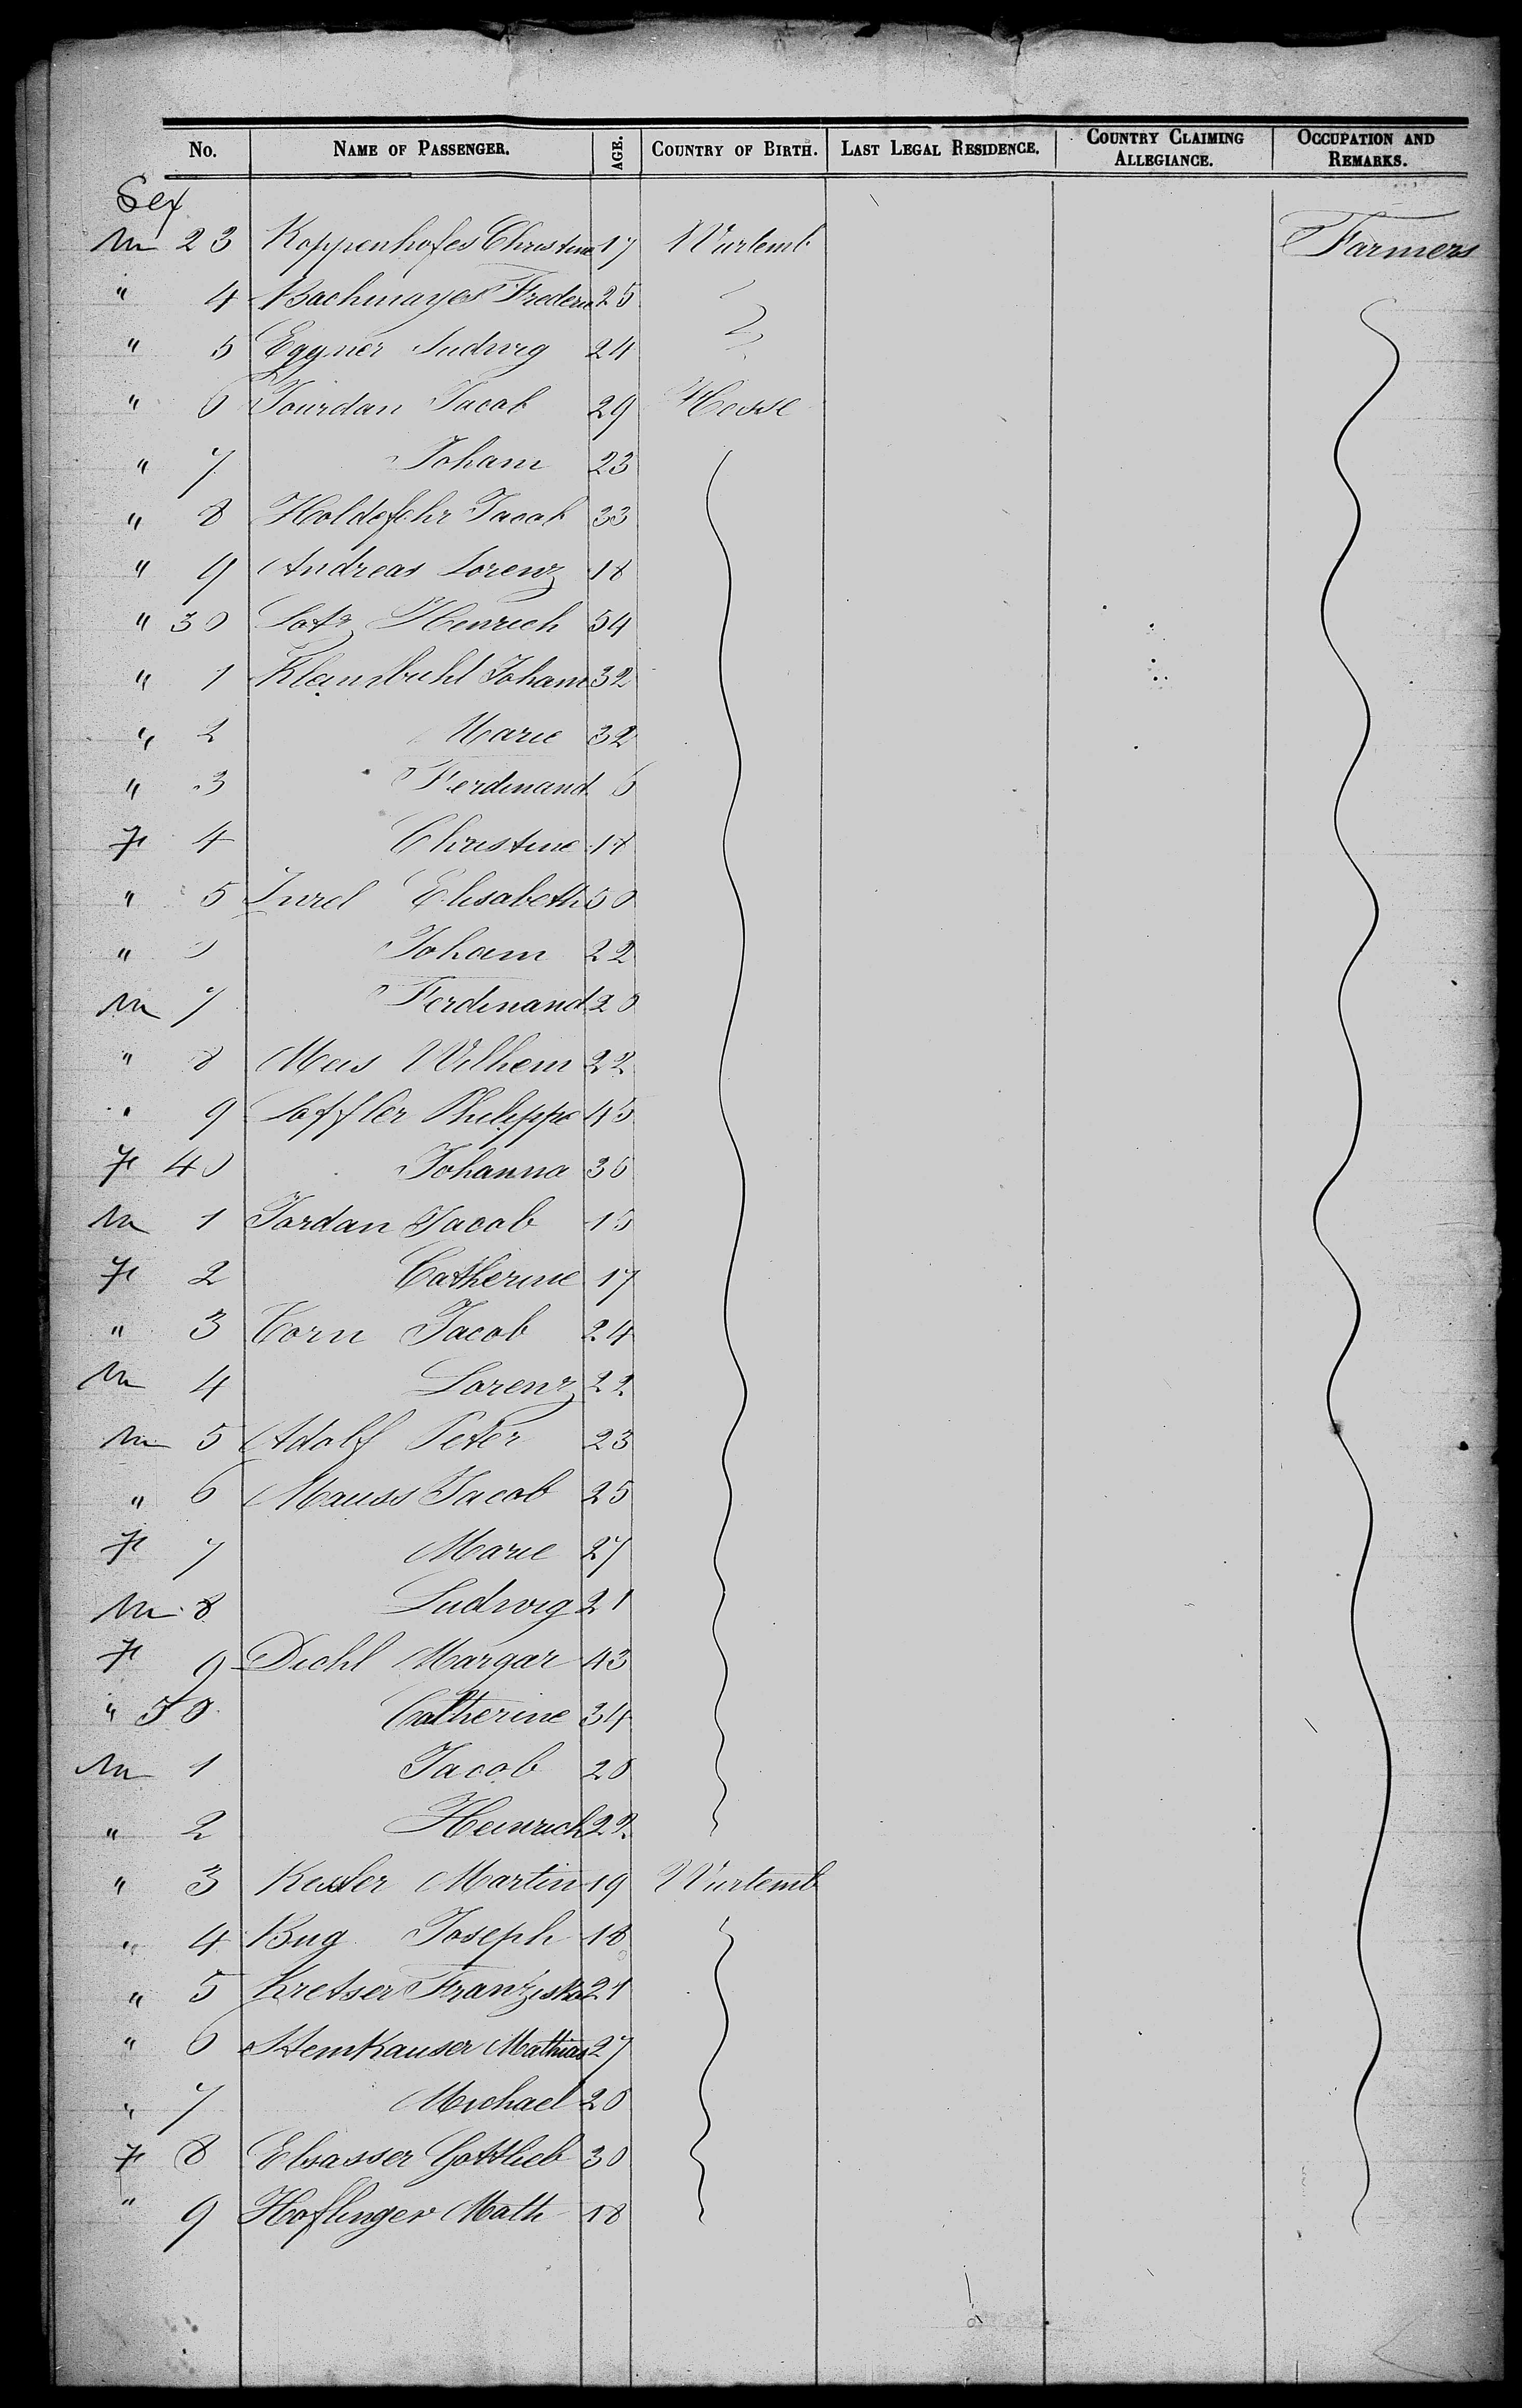 No. NAME OF PASSENGER. AGE. COUNTRY OF BIRTH. LAST LEGAL RESIDENCE. COUNTRY CLAIMING ALLEGIANCE. OCCUPATION AND REMARKS.
Sex
M 23 Koppenhofer Christine 17 Wurtemb Farmers
" 4 Bachmayer Frederic 25
" 5 Eggner Ludwig 24
" 6 Jourdan Jacob 29 Hesse
" 7 Joham 23
" 8 Holdefehr Jacob 33
" 9 Andreas Lorenz 18
" 30 Lotz Henrich 54
" 1 Kleinsbuhl Joham 32
" 2 Marie 32
" 3 Ferdinand 6
F 4 Christine 18
" 5 Elisabeth 50
" 6 Joham 22
M 7 Ferdinand 20
" 8 Meis Wilhem 22
" 9 Loffler Philippe 45
F 40 Johanna 36
M 1 Jordan Jacob 15
F 2 Catherine 17
" 3 Corn Jacob 24
M 4 Lorenz 22
M 5 Adolf Peter 23
" 6 Mauss Jacob 25
F 7 Marie 27
M 8 Ludwig 21
F 9 Diehl Margar 43
" 50 Catherine 34
M 1 Jacob 20
" 2 Heinrich 22
" 3 Kesler Martin 19 Wurtemb
" 4 Bug Joseph 18
" 5 Kretser Franziska 21
" 6 Stemkauser Mathias 27
" 7 Michael 20
F 8 Elsasser Gottlieb 30
" 9 Hoflinger Math 18